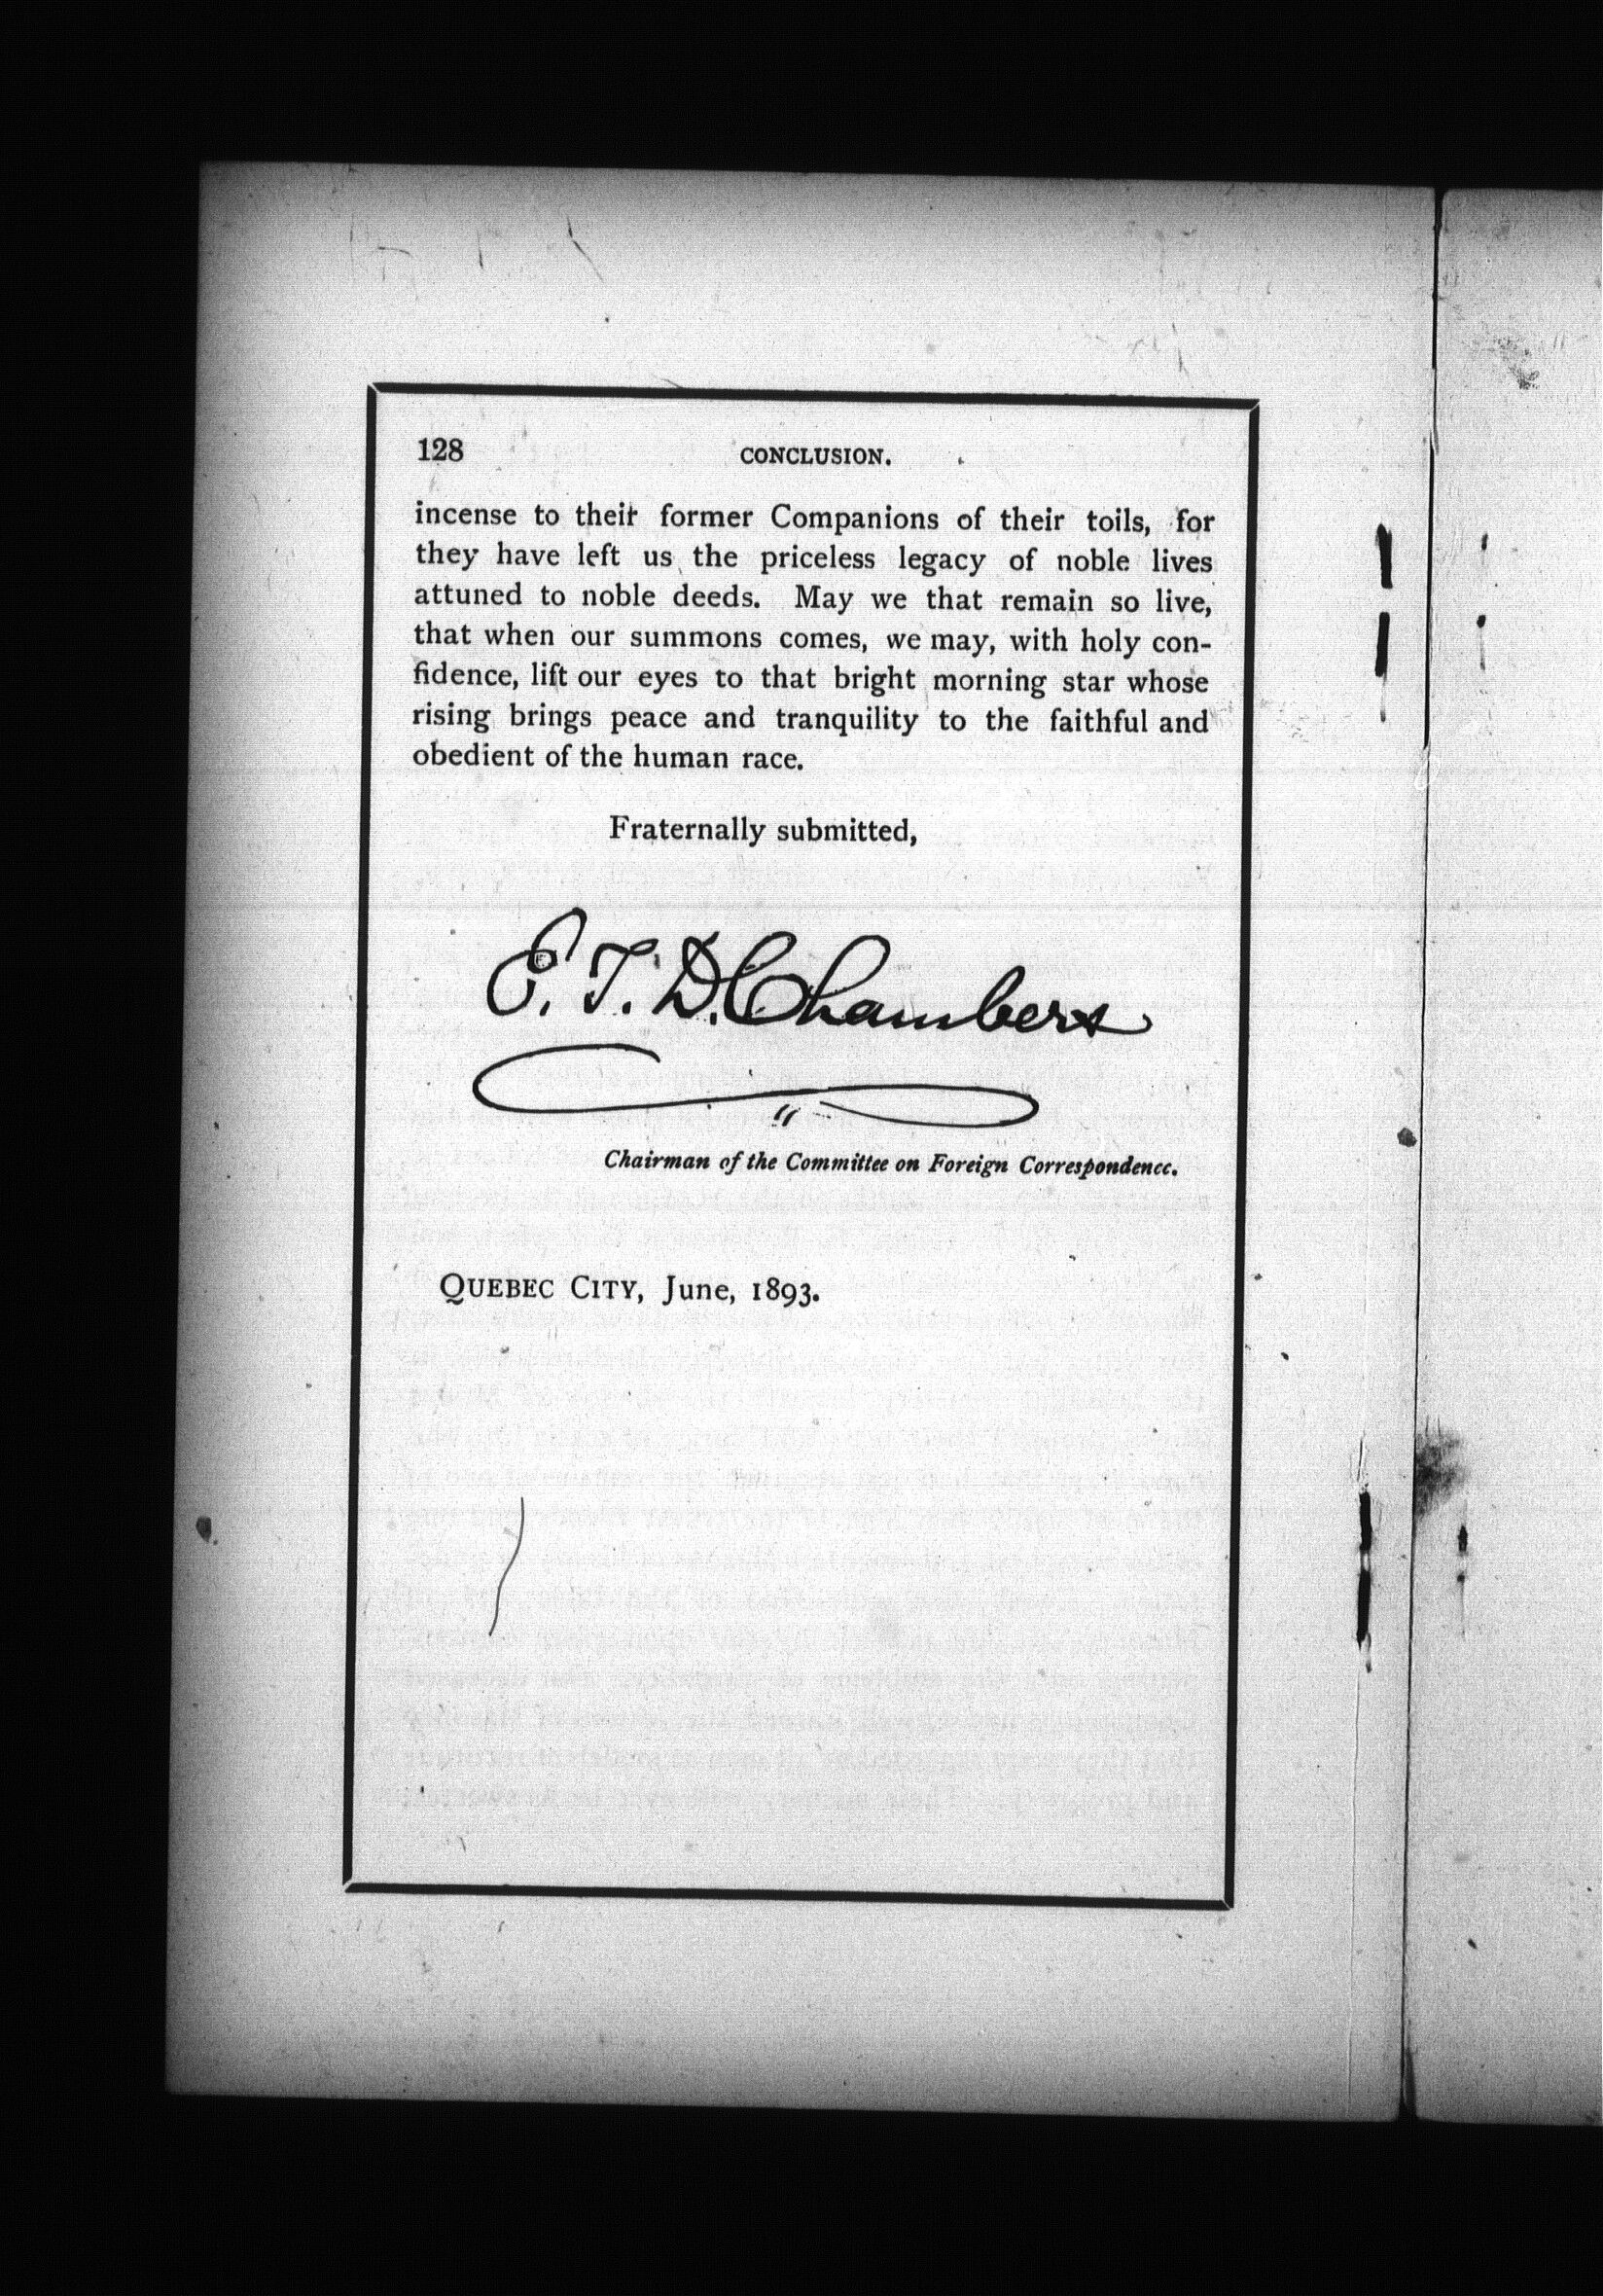 128 CONCLUSION.
incense to their former Companions of their toils, for
they have left us the priceless legacy of noble lives
attuned to noble deeds. May we that remain so live,
that when our summons comes, we may, with holy con-
fidence, lift our eyes to that bright morning star whose
rising brings peace and tranquility to the faithful and
obedient of the human race.
Fraternally submitted,
E. T. D. Chambers
Chairman of the Committee on Foreign Correspondence.
QUEBEC CITY, June, 1893.